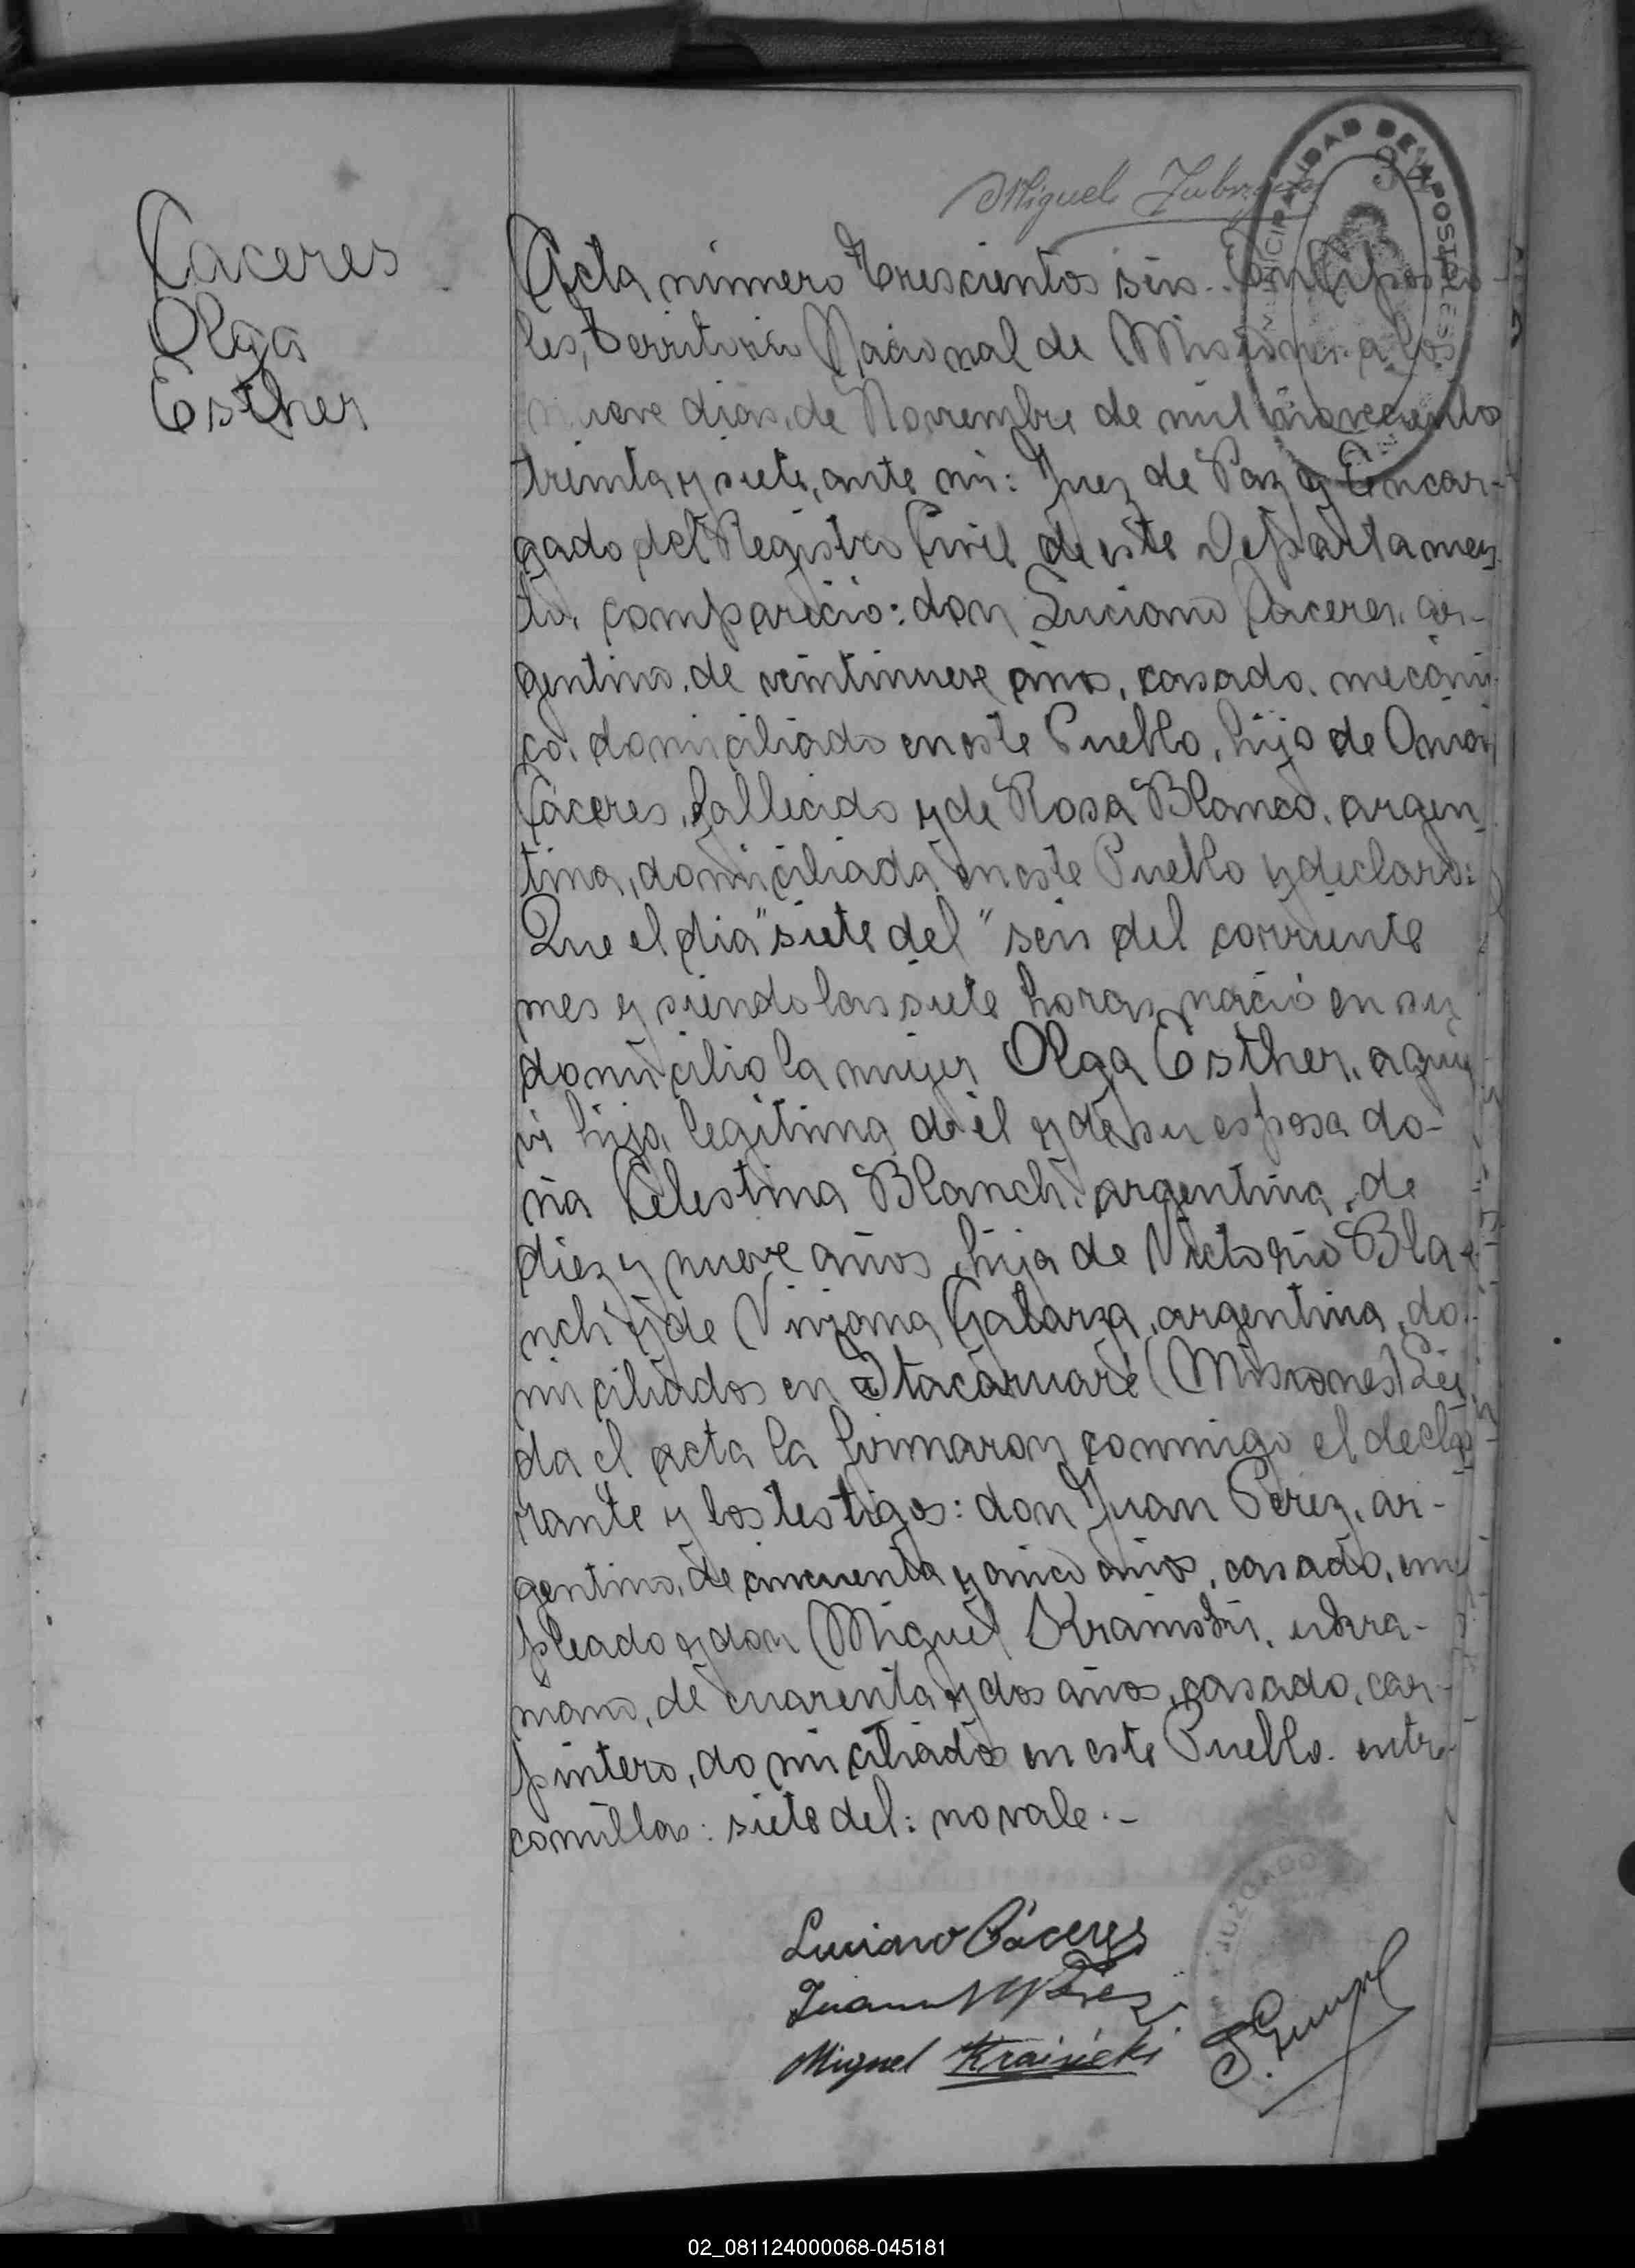 Caceres
Olga
Esther
Miguel
MUNICIPALIDAD DE APOSTOLES
Acta número Trescientos seis. En Aposto-
les, Territorio Nacional de Misiones a los
nueve dias de Noviembre de mil novecientos
treinta y siete, ante mi: Juez de Paz y Encar-
gado del Registro Civil de este Departamen
to, compareció: don Luciano Caceres, ar-
gentino, de veintinueve años, casado, mecáni
co, domiciliado en este Pueblo, hijo de
Caceres, fallecido y de Rosa Blanco, argen
tina, domiciliada en este Pueblo y declaró:
Que el dia "siete del" seis del corriente
mes y siendo las siete horas, nació en su
domicilio la mujer Olga Esther, a quien
vi hija legitima de él y de su esposa do-
ña Celestina Blanch, argentina, de
diez y nueve años, hija de Victorio Bla-
nch y de Viviana Galarza, argentina, do
miciliados en Itacaruaré (Misiones) Leí
da el acta la firmaron conmigo el decla
rante y los testigos: don Juan Perez, ar-
gentino, de cincuenta y cinco años, casado, em
pleado y don Miguel ukra-
niano, de cuarenta y dos años, casado, car-
pintero, domiciliados en este Pueblo. entre
comillas: siete del: no vale.-
JUZGADO
Luciano Cáceres
Juan Perez
Miguel Kraisicki
02_081124000068-045181